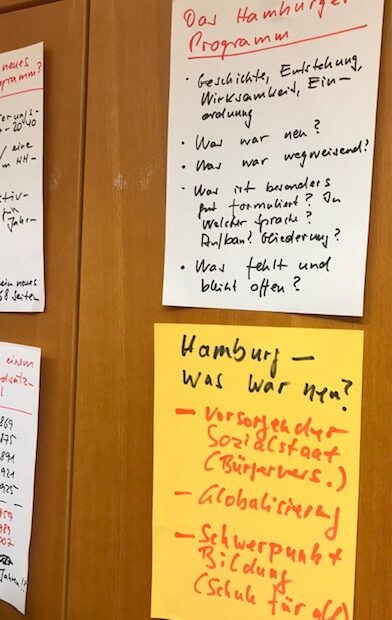 neues
Programm?
20 40
eine
HH-
Jahr-
ein neues
68 Seiten
einem
869
875
891
921
925
959
989
007
Jahren!?
Das Hamburger
Programm
· Geschichte, Entstehung,
Wirksamkeit, Ein-
ordnung
· Was war neu?
· Was war wegweisend?
· Was ist besonders
gut formuliert? In
welcher Sprache?
Aufbau? Gliederung?
· Was fehlt und
bleibt offen?
Hamburg –
Was war neu?
– vorsorgender
Sozialstaat
(Bürgervers.)
– Globalisierung
– Schwerpunkt
Bildung
(Schule für all